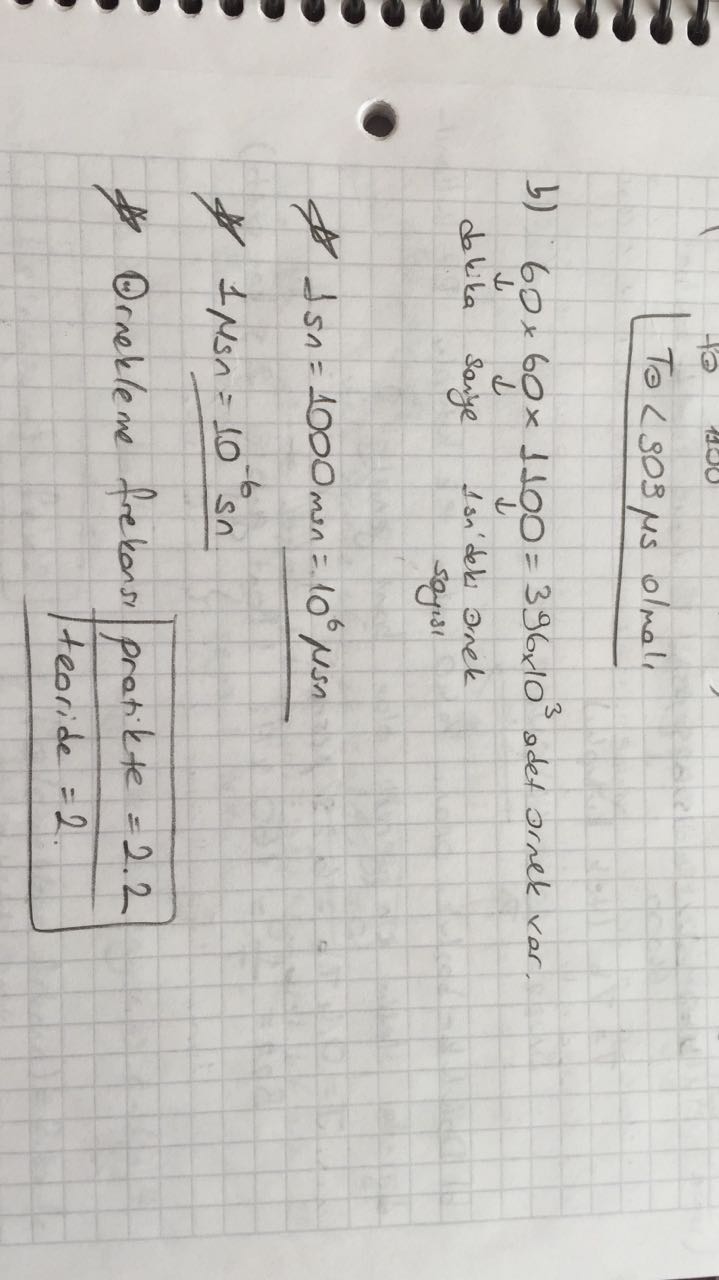 1100
Tö < 909 µs olmalı
b) 60 x 60 x 1100 = 396x10³ adet örnek var.
↓ ↓ ↓
dakika saniye 1 sn'deki örnek
sayısı
* 1 sn = 1000 msn = 10⁶ µsn
* 1 µsn = 10⁻⁶ sn
* Örnekleme frekansı pratikte = 2.2
teoride = 2.